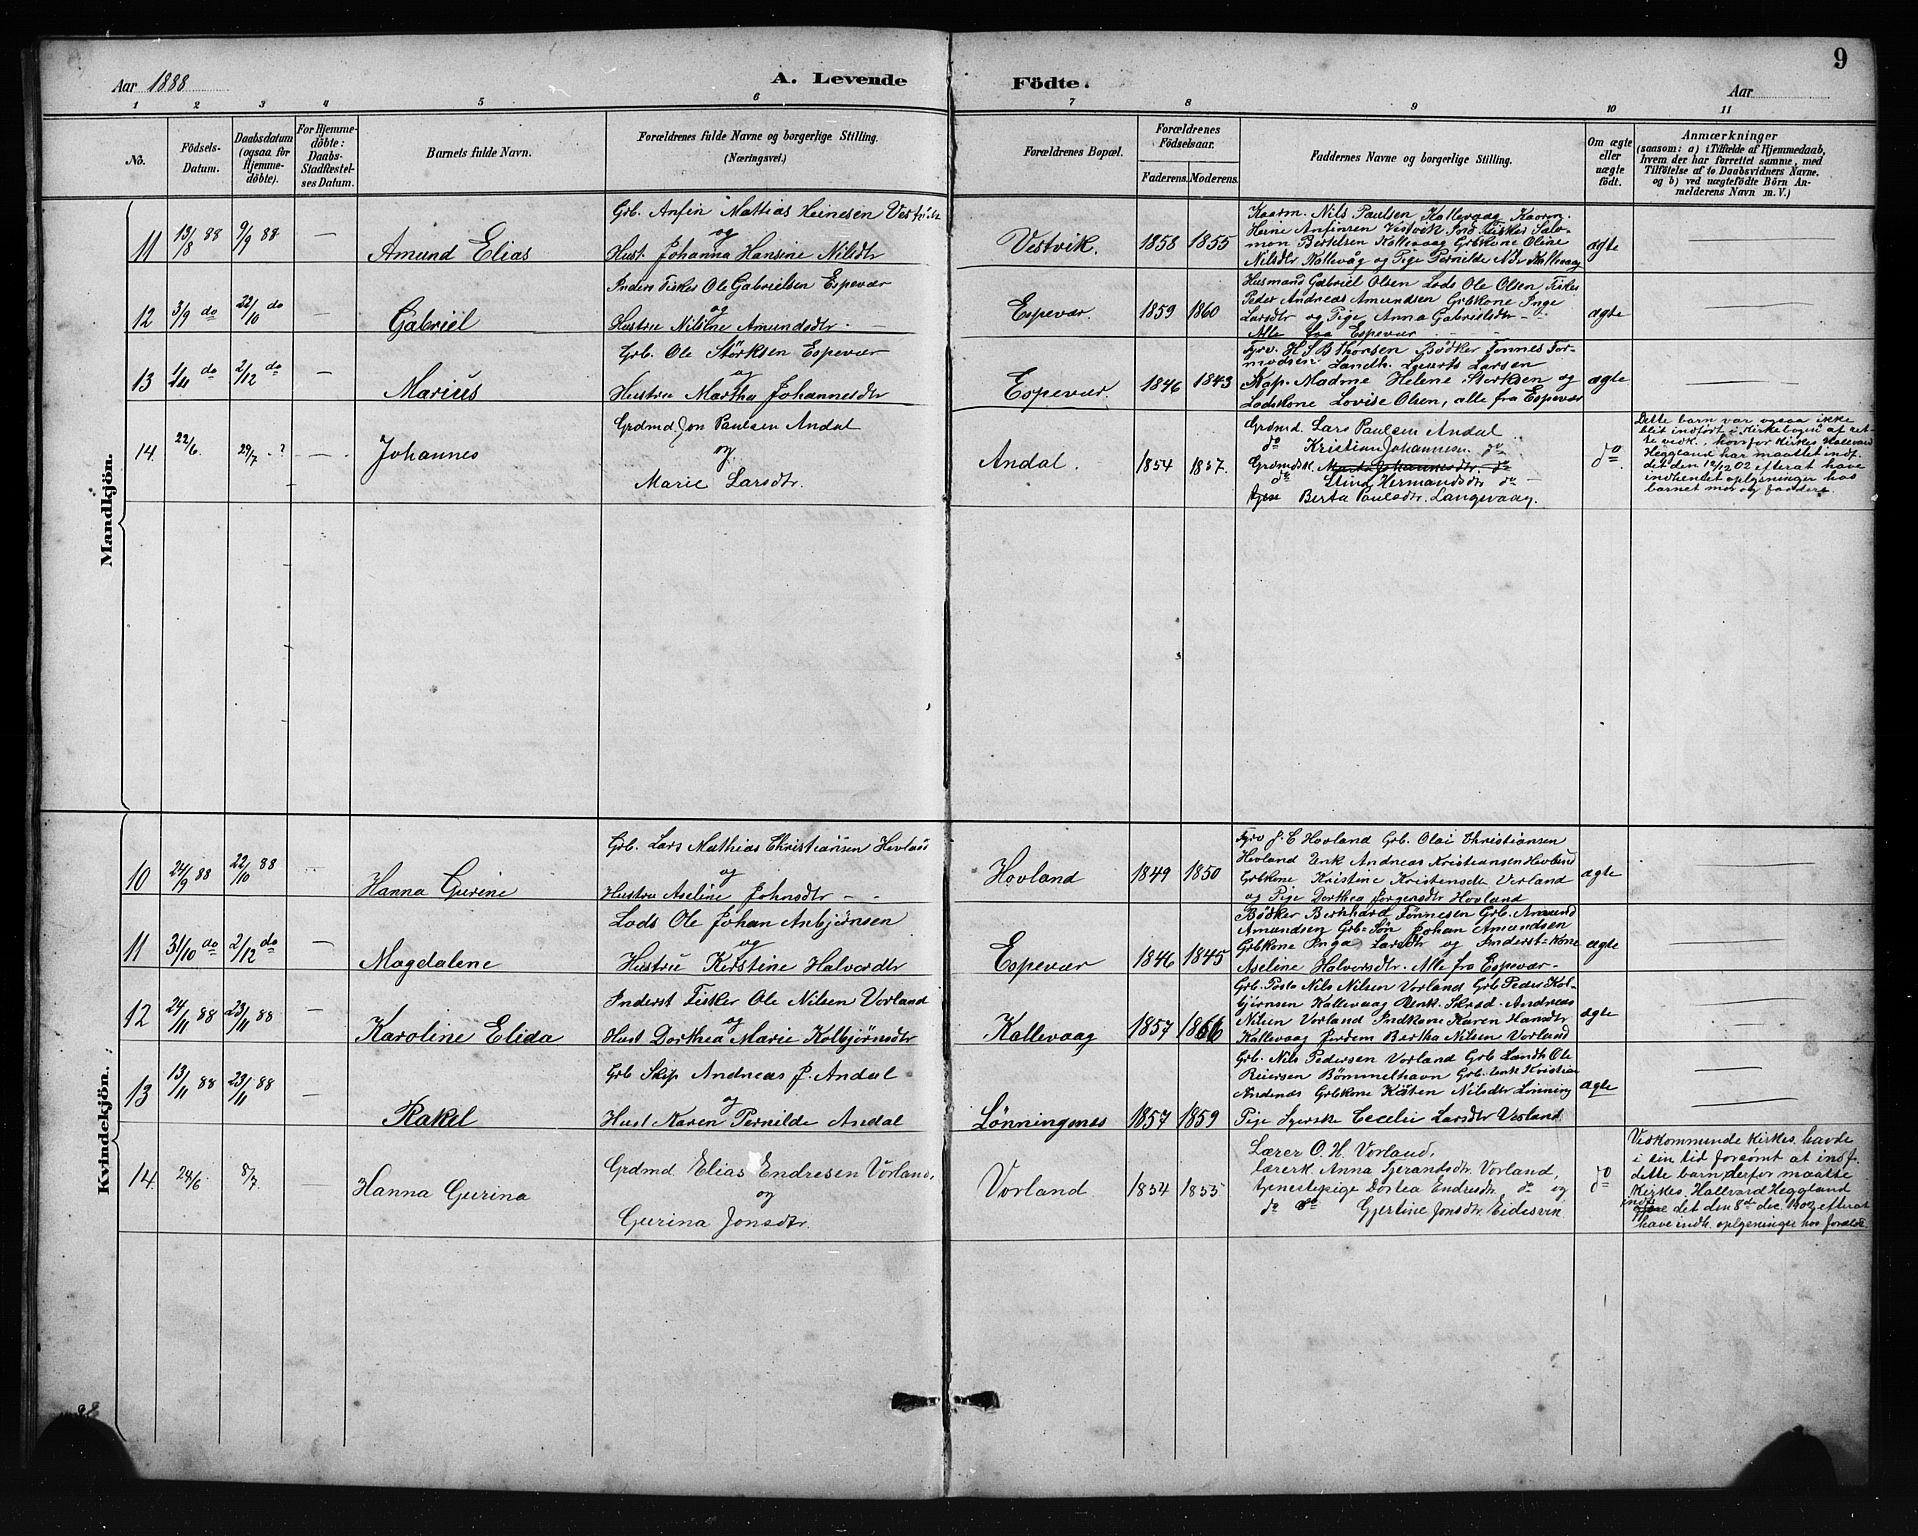 9
Aar 1888
A. Levende Födte.
Aar
1 2 3 4 5 6 7 8 9 10 11
No.
Födsels-Datum.
Daabsdatum (ogsaa for Hjemmedöbte).
For Hjemmedöbte: Daabs-Stadfæstelses Datum.
Barnets fulde Navn.
Forældrenes fulde Navne og borgerlige Stilling.
(Næringsvei.)
Forældrenes Bopæl.
Forældrenes Födselsaar.
Faderens. Moderens.
Faddernes Navne og borgerlige Stilling.
Om ægte eller uægte födt.
Anmærkninger
(saasom: a) i Tilfælde af Hjemmedaab,
hvem der har forrettet samme, med
Tilföielse af to Daabsvidners Navne.
og b) ved uægtefödte Börn Anmelderens Navn m. V.)
Mandkjön.
11 13/8 88 9/9 88 — Amund Elias
Grb. Anfin Mathias Heinesen Vestvik
og
Hust. Johanna Hansine Nilsdtr
Vestvik. 1858 1855
Kaarm. Nils Paulsen Kallevaag Kaarm.
Heine Anfinsen Vestvik Ind Fisker Salo-
mon Bertelsen Kallevaag Grbkone Oline
Nilsdtr Kallevåg og Pige Pernilde Nilsdtr Kallevaag
ægte —
12 3/9 do 22/10 do — Gabriel
Inders Fisker Ole Gabrielsen Espevær
og
Hustru Nilsine Amundsdtr. —
Espevær. 1859 1860
Husmand Gabriel Olsen Lods Ole Olsen Fisker
Peder Andreas Amundsen Grbkone Inge
Larsdtr og Pige Anna Gabrielsdtr —
Alle fra Espevær
ægte —
13 1/11 do 2/12 do — Marius
Grb. Ole Störksen Espevær
og
Hustru Martha Johannesdtr
Espevær. 1846 1843
Fyrv. H S B Thorsen Bödker Tönnes Tor-
modsen Landh. Lauerts Larsen
Kap. Madme Helene Storksen og
Lodskone Lovise Olsen, alle fra Espevær
ægte —
14. 22/6. 29/7 .? — Johannes
Grdmd. Jon Paulsen Andal
og.
Marie Larsdtr.
Andal. 1854 1857.
Grdmd. Lars Paulsen Andal
do Kristian Johannesen do
Grdmdsk. Marta Johannesdtr. do
do Stina Hermundsdtr do —
Berta Paulsdtr. Langevaag.
do.
Dette barn var ogsaa ikke
blit indfört i Kirkebogen af ret-
te vedk., hvorfor Kirkes. Hallvard
Heggland har maattet indf.
det den 12/12 02 efterat have
indhentet oplysninger hos
barnet mor og faddere.
Kvindekjön.
10 24/9 88 22/10 88 — Hanna Gurine
Grb. Lars Mathias Christiansen Hovland
og
Hustru Aseline Johnsdtr —
Hovland 1849 1850
Fyrv J. C Hovland Grb. Olai Christiansen
Hovland Enk Andreas Kristiansen Hovland
Grbkone Kristine Kristensdtr Vorland
og Pige Dorthea Jörgensdtr Hovland
ægte —
11 31/10 do 2/12 do — Magdalene
Lods Ole Johan Anbjörnsen
og
Hustru Kerstine Halvordtr
Espevær 1846 1845
Bödker Bernhard Tönnesen Grb. Amund
Amundsen Grb-Sön Johan Amundsen
Grbkone Inga Larsdtr og Inderst-kone
Aseline Halvorsdtr. Alle fra Espevær —
ægte —
12 24/11 88 23/11 88 Karoline Elida
Inderst Fisker Ole Nilsen Vorland
og
Hust Dorthea Marie Kolbjörnsdtr
Kallevaag 1857 1866
Grb. Nils Nilsen Vorland Grb Peder Kol-
björnsen Kallevaag Andreas
Nilsen Vorland Indkone Karen Hansdtr
Kallevaag Jordem Bertha Nilsen Vorland
ægte —
13 13/11 88 23/11 88 — Rakel
Grb Skip Andreas J. Andal
og
Hust Karen Pernilde Andal
Lönningnes 1857 1859
Grb. Nils Pedersen Vorland Grb Landh Ole
Reiersen Bömmelhavn Grb. Enk Kristian
Andenæs Grbkone Karen Nilsdtr Lönning
Pige Cecelie Larsdtr Vorland
ægte —
14. 24/6. 8/7. Hanna Gurina
Grdmd Elias Endresen Vorland,
og
Gurina Jonsdtr.
Vorland 1854 1855
Lærer O. H. Vorland,
lærerk. Anna Tjerandsdtr. Vorland,
tjenestepige Dortea Endresdtr. do og
do do Gjertine Jonsdtr. Eidesvik.
do
Vedkommende kirkes. havde
i sin tid forsömt at indf.
dette barn, derfor maatte
Kirkes. Hallvard Heggland
indf. det den 8de dec. 1902 efterat
have indh. oplysninger hos foræld.